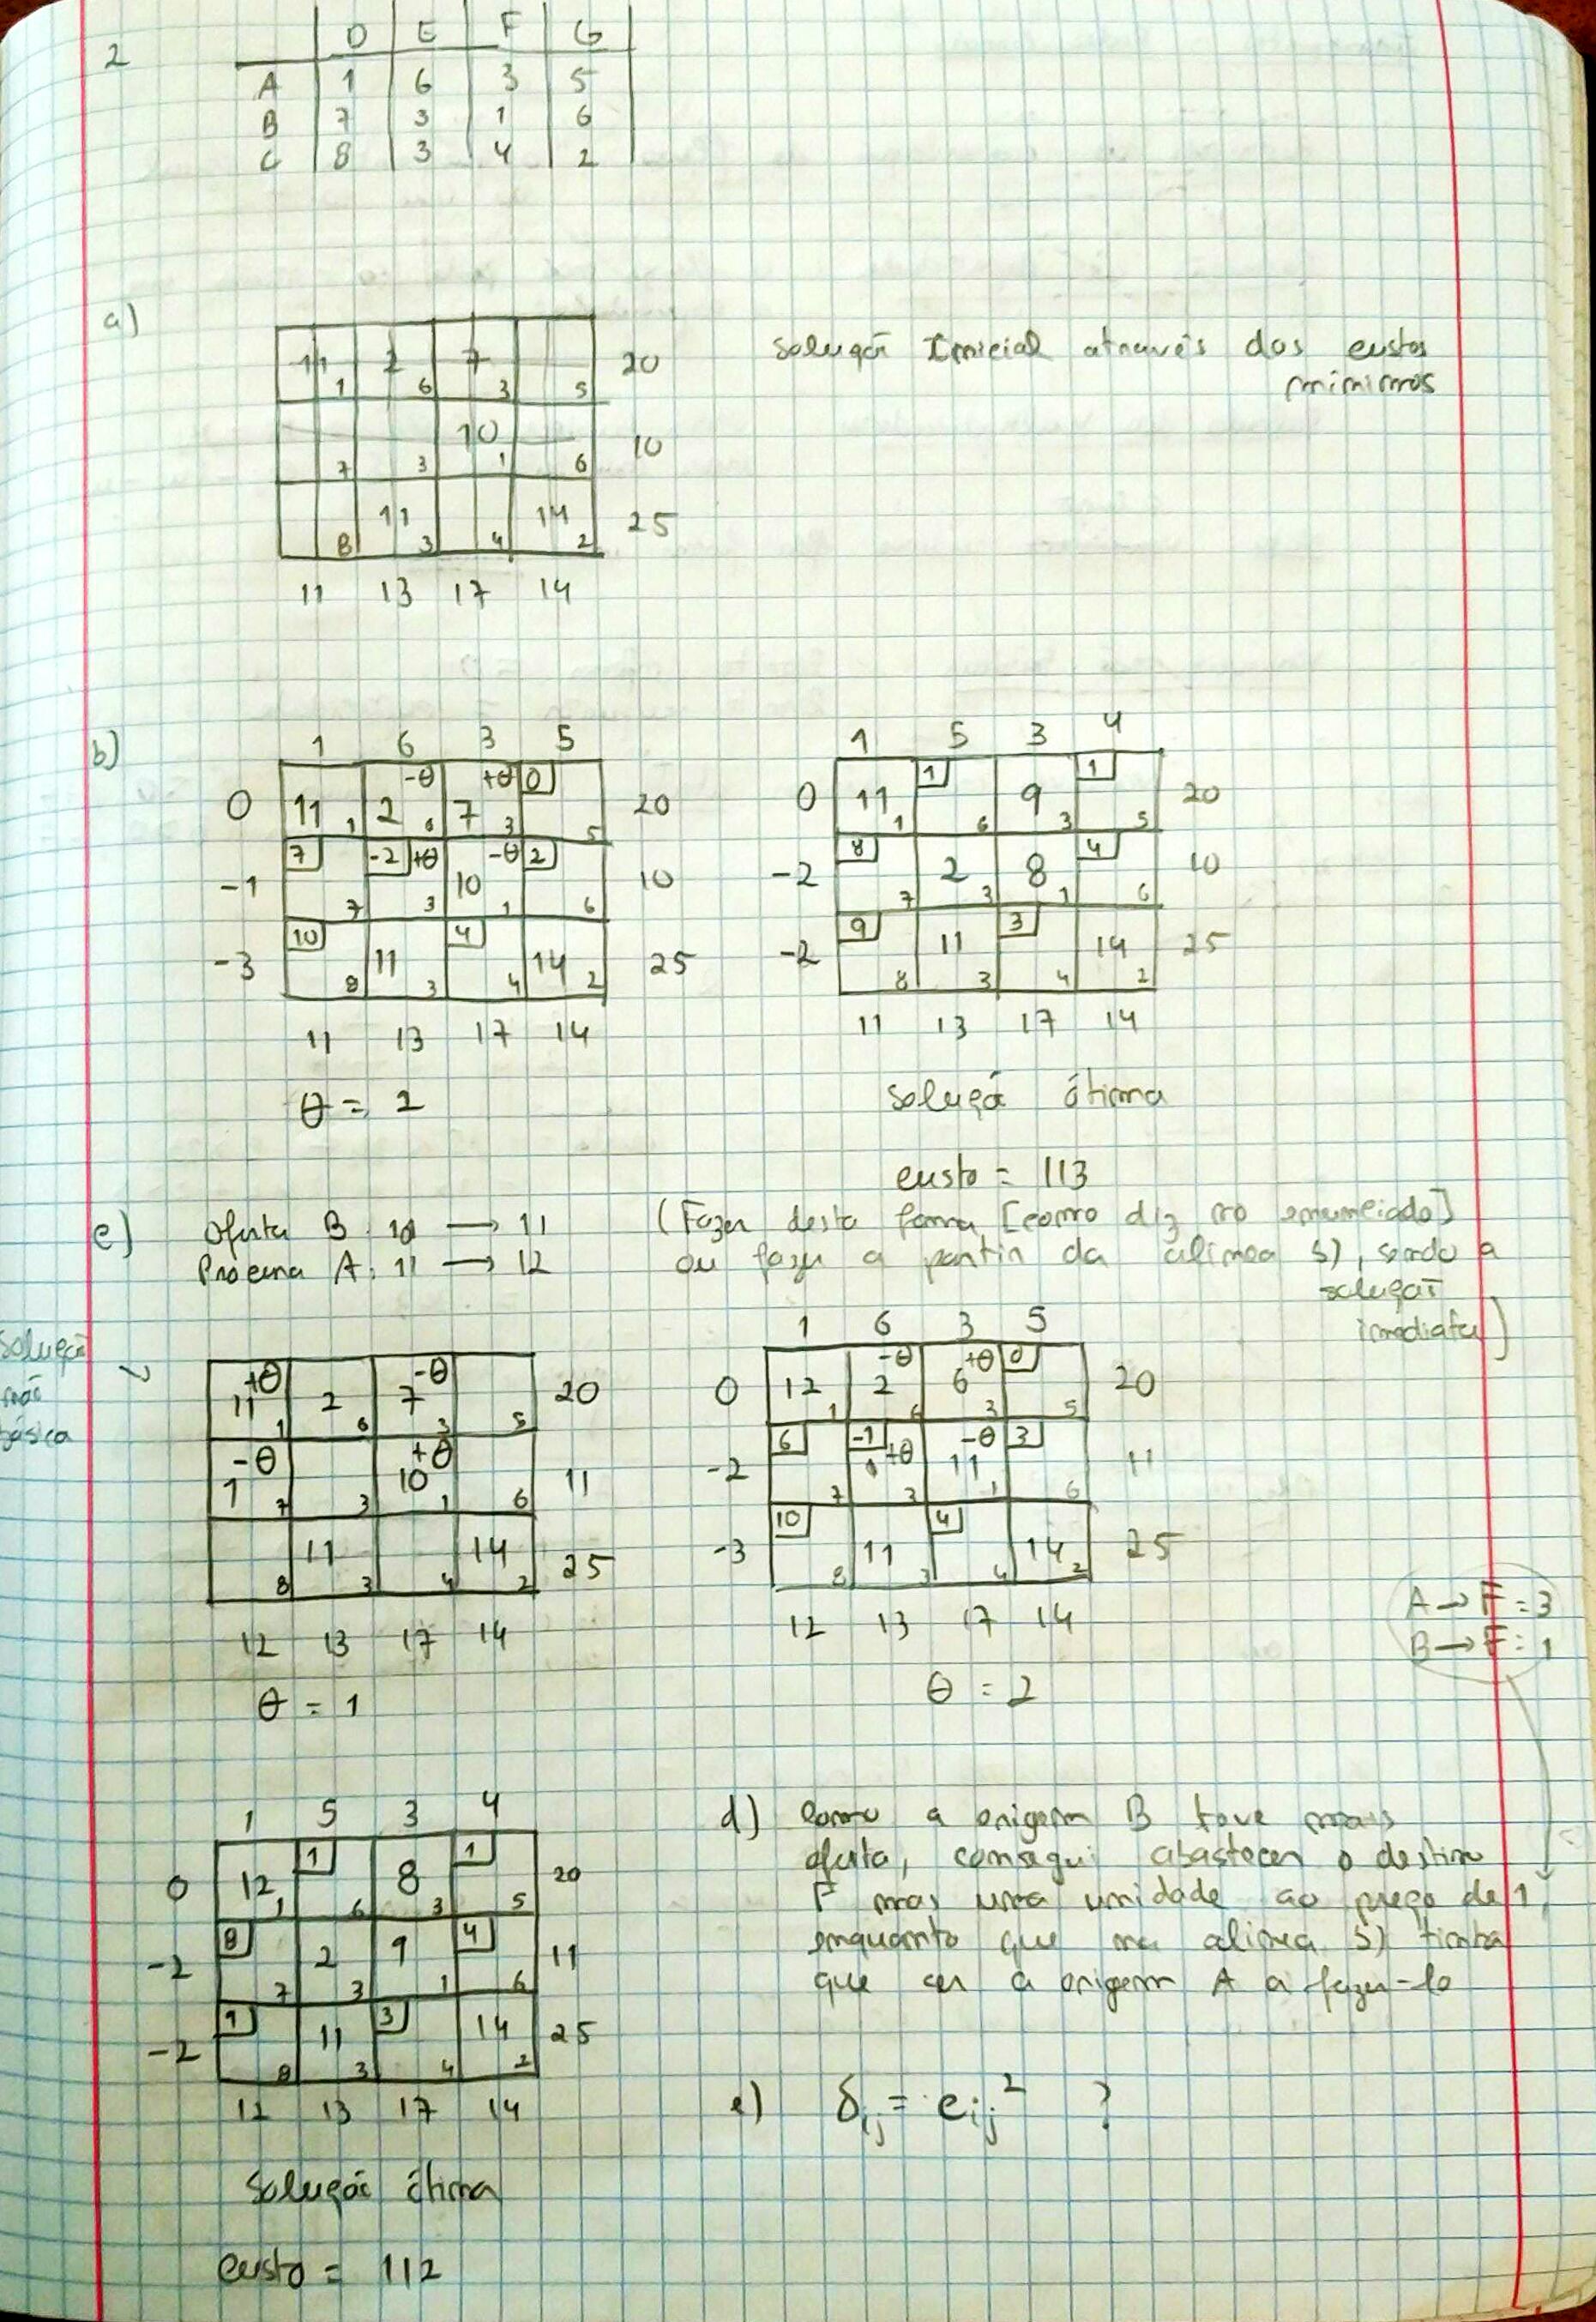 2
D E F G
A 1 6 3 5
B 7 3 1 6
C 8 3 4 2
a)
11 1 2 6 7 3 5 20
7 3 10 1 6 10
8 11 3 4 14 2 25
11 13 17 14
Solução Inicial através dos custos
mínimos
b)
1 6 3 5
0 11 1 2 -θ 6 7 +θ 3 0 5 20
-1 7 7 -2 +θ 3 10 -θ 1 2 6 10
-3 10 8 11 3 4 4 14 2 25
11 13 17 14
θ = 2
1 5 3 4
0 11 1 1 6 9 3 1 5 20
-2 8 7 2 3 8 1 4 6 10
-2 9 8 11 3 3 4 14 2 25
11 13 17 14
solução ótima
custo = 113
c) Oferta B: 10 → 11
Procura A: 11 → 12
(Fazer desta forma [como diz no enunciado]
ou fazer a partir da alínea b), sendo a
solução
imediata)
Solução
não
básica
11 +θ 1 2 6 7 -θ 3 5 20
1 -θ 7 3 10 +θ 1 6 11
8 11 3 4 14 2 25
12 13 17 14
θ = 1
1 6 3 5
0 12 1 2 -θ 6 6 +θ 3 0 5 20
-2 6 7 -1 +θ 3 11 -θ 1 3 6 11
-3 10 8 11 3 4 4 14 2 25
12 13 17 14
θ = 2
A → F = 3
B → F = 1
1 5 3 4
0 12 1 1 6 8 3 1 5 20
-2 8 7 2 3 9 1 4 6 11
-2 9 8 11 3 3 4 14 2 25
12 13 17 14
Solução ótima
custo = 112
d) Como a origem B teve mais
oferta, consegui abastecer o destino
F mais uma unidade ao preço de 1,
enquanto que na alínea b) tinha
que ser a origem A a fazê-lo
e) δij = cij² ?